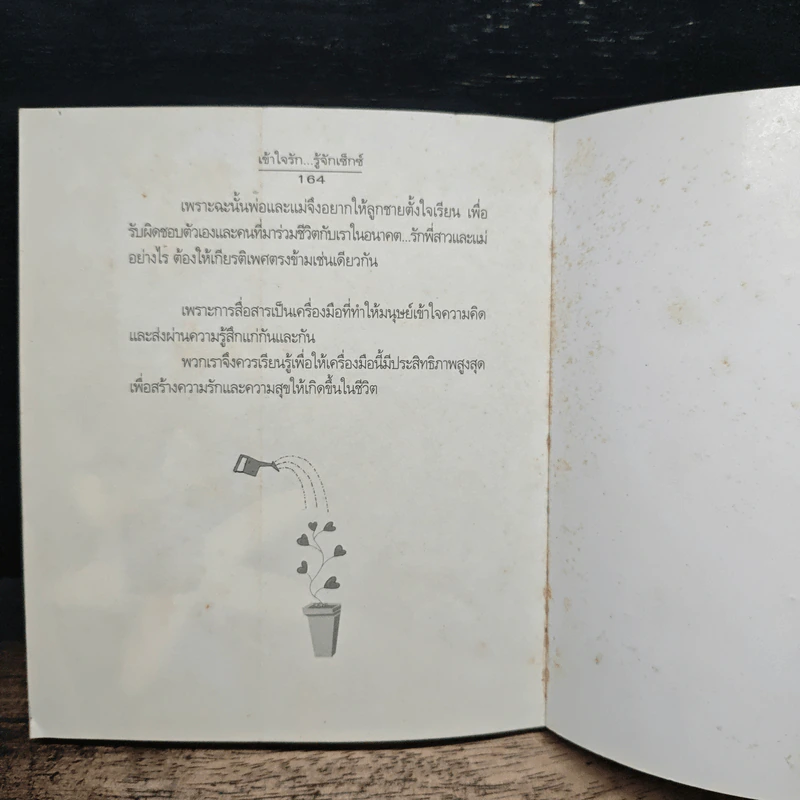 เข้าใจรัก...รู้จักเซ็กซ์
164
เพราะฉะนั้นพ่อและแม่จึงอยากให้ลูกชายตั้งใจเรียน เพื่อ
รับผิดชอบตัวเองและคนที่มาร่วมชีวิตกับเราในอนาคต...รักพี่สาวและแม่
อย่างไร ต้องให้เกียรติเพศตรงข้ามเช่นเดียวกัน
เพราะการสื่อสารเป็นเครื่องมือที่ทำให้มนุษย์เข้าใจความคิด
และส่งผ่านความรู้สึกแก่กันและกัน
พวกเราจึงควรเรียนรู้เพื่อให้เครื่องมือนี้มีประสิทธิภาพสูงสุด
เพื่อสร้างความรักและความสุขให้เกิดขึ้นในชีวิต